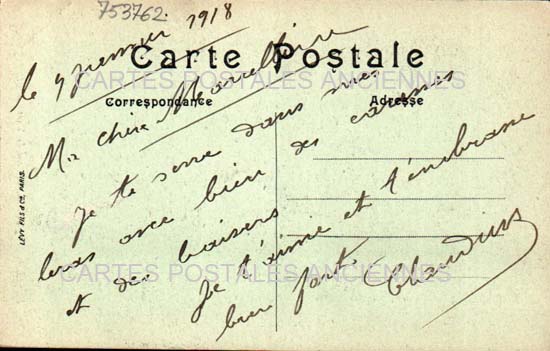 753762
le 9 janvier 1918
Carte Postale
CARTES POSTALES ANCIENNES
Correspondance
Adresse
Ma chère Marcelline
Je te serre dans mes
bras avec bien des caresses
et des baisers
Je t'aime et t'embrasse
bien fort
LÉVY FILS & Cie, PARIS.
CARTES POSTALES ANCIENNES